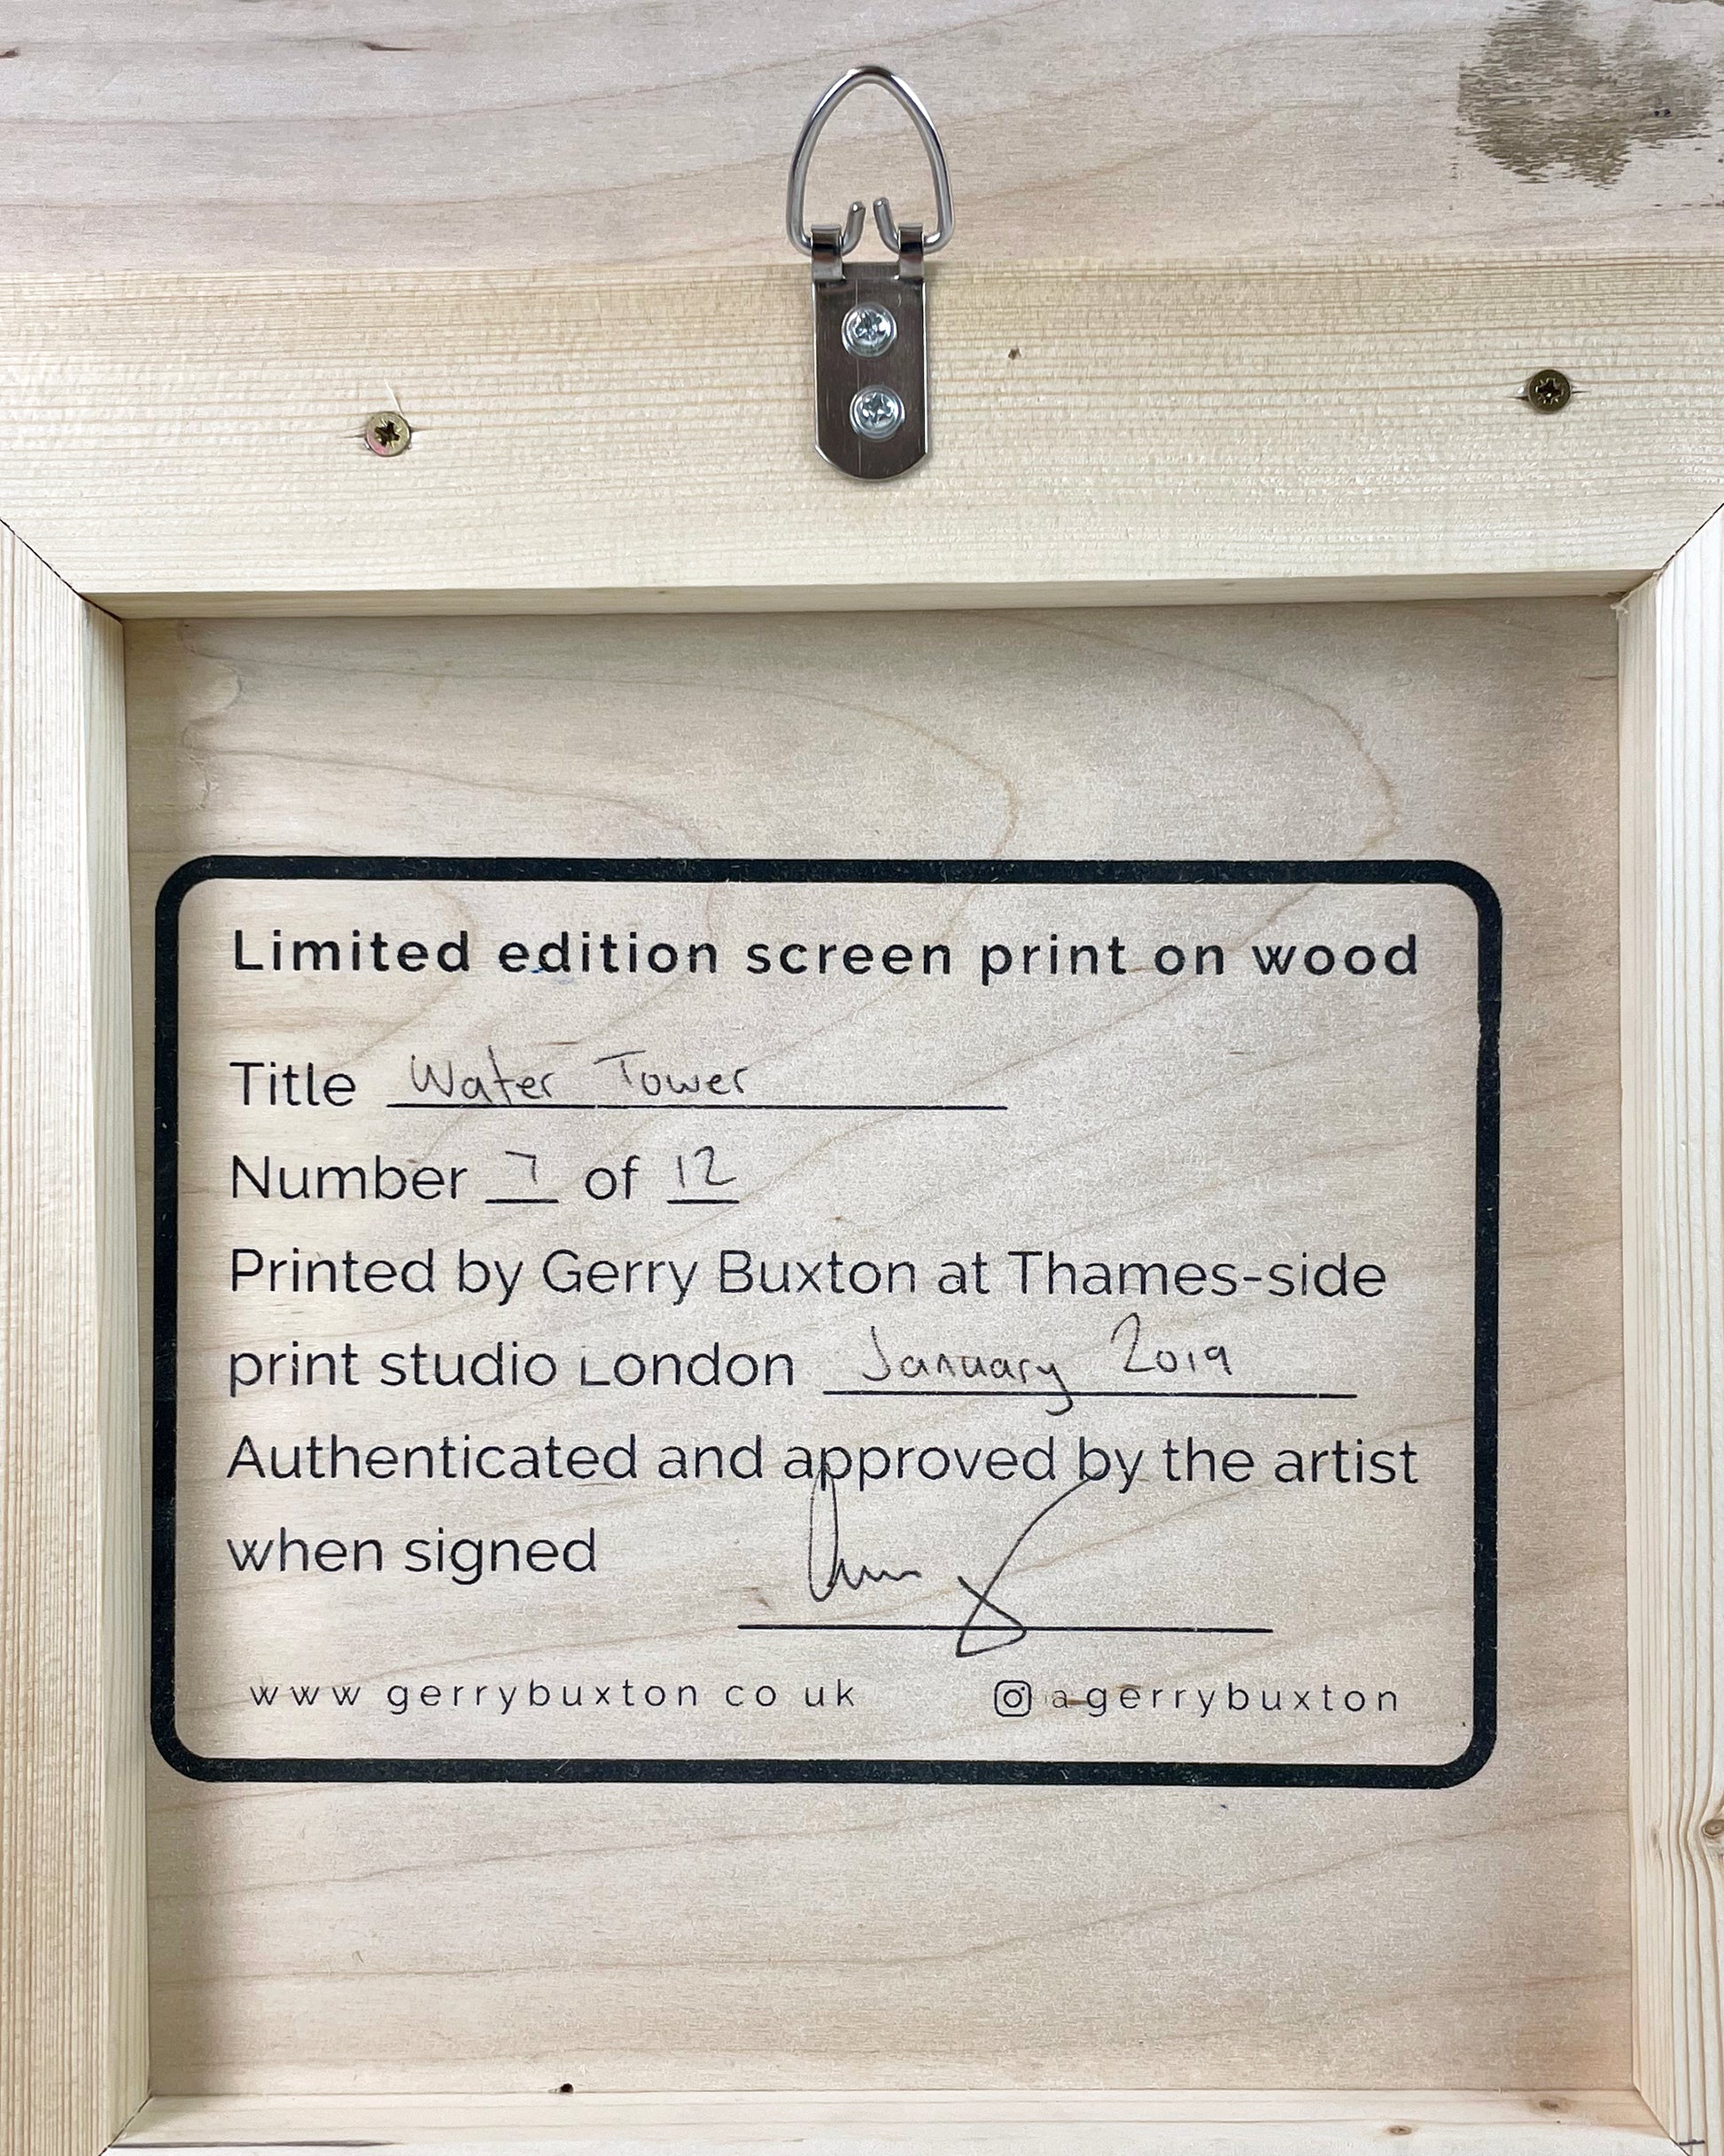 Limited edition screen print on wood
Title Water Tower
Number 7 of 12
Printed by Gerry Buxton at Thames-side
print studio London January 2019
Authenticated and approved by the artist
when signed
www gerrybuxton co uk
a gerrybuxton